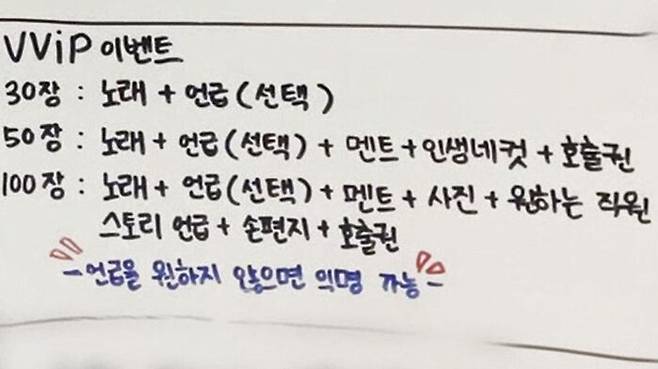 VViP 이벤트
30장 : 노래 + 언급(선택)
50장 : 노래 + 언급(선택) + 멘트 + 인생네컷 + 호출권
100장 : 노래 + 언급(선택) + 멘트 + 사진 + 원하는 직원
스토리 언급 + 손편지 + 호출권
- 언급을 원하지 않으면 익명 가능 -